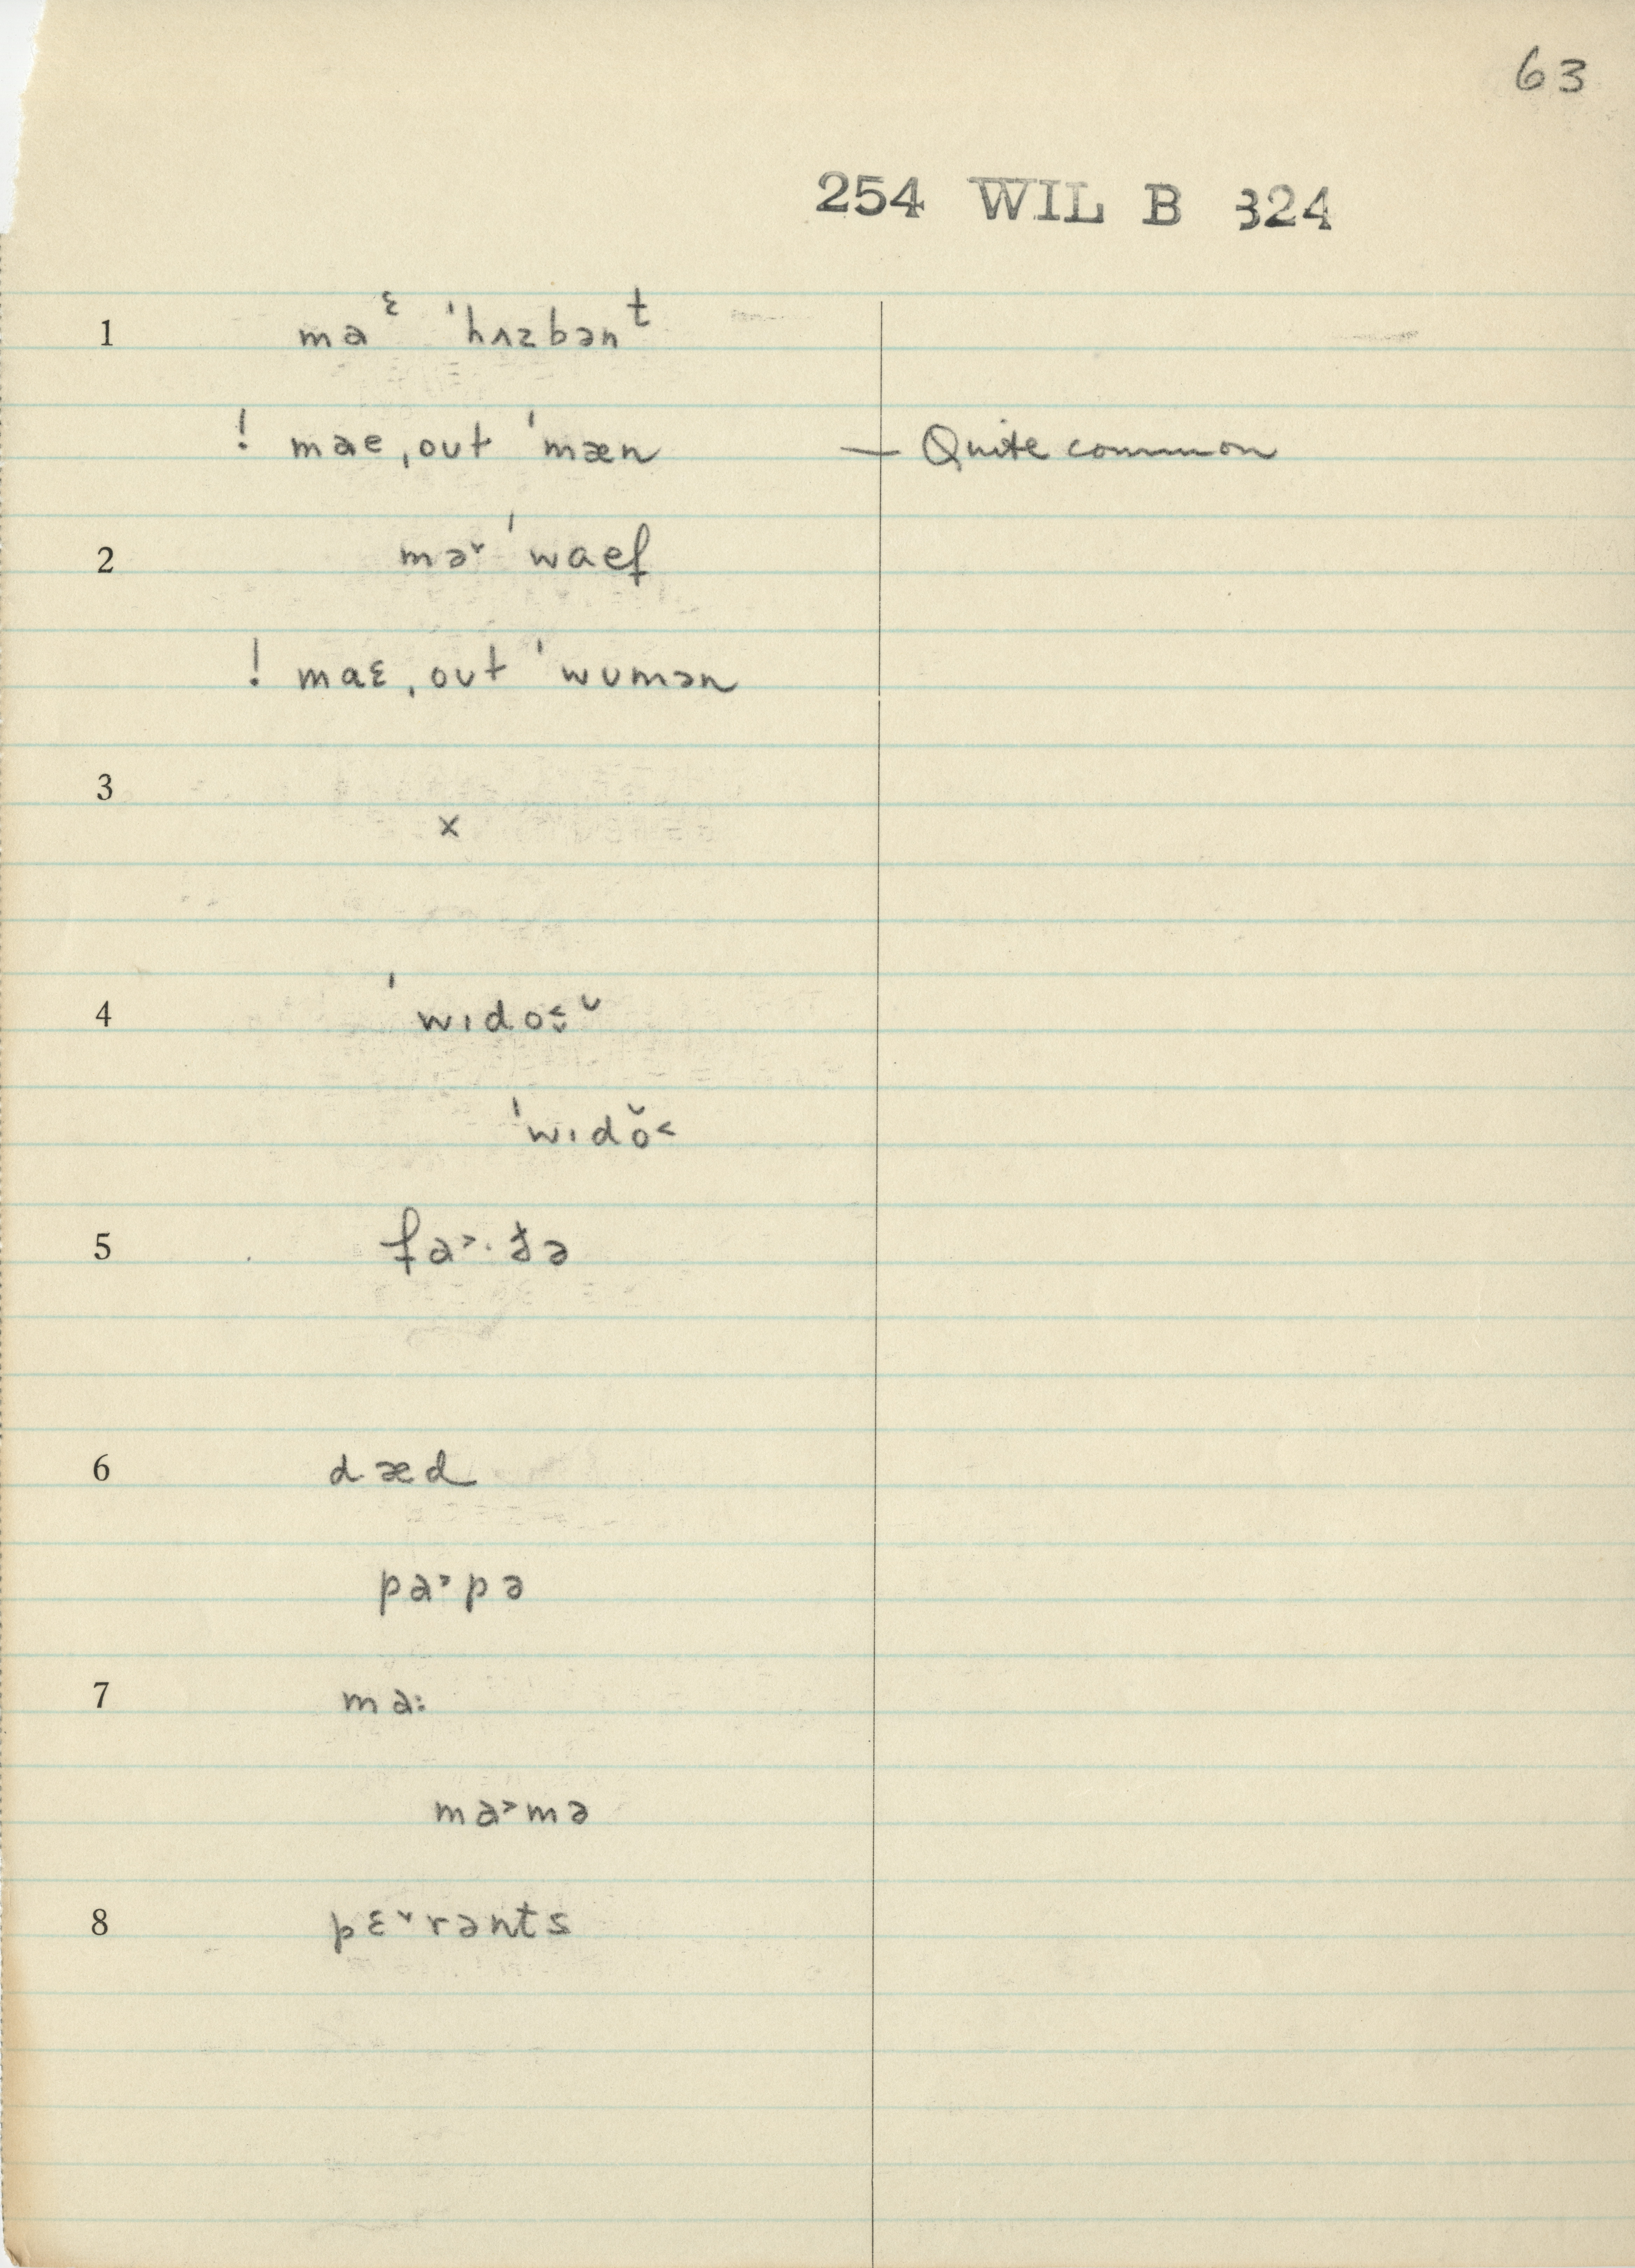 63
254 WIL B 324
1 maᵋ ˈhʌzbənᵗ
! mae ˌoʊt ˈmæn — Quite common
2 mə˅ ˈwaef
! maɛ ˌoʊt ˈwʊmən
3 x
4 ˈwɪdo˂̬ᶷ
ˈwɪdŏ˂
5 fa˃·ðə
6 dæd
pa˃pə
7 ma:
ma˃mə
8 pɛ˅rənts